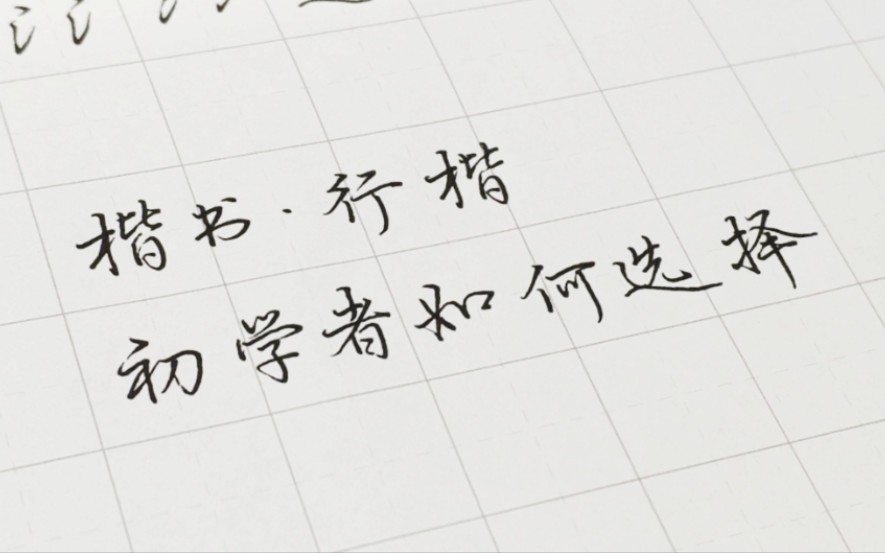 楷书·行楷
初学者如何选择